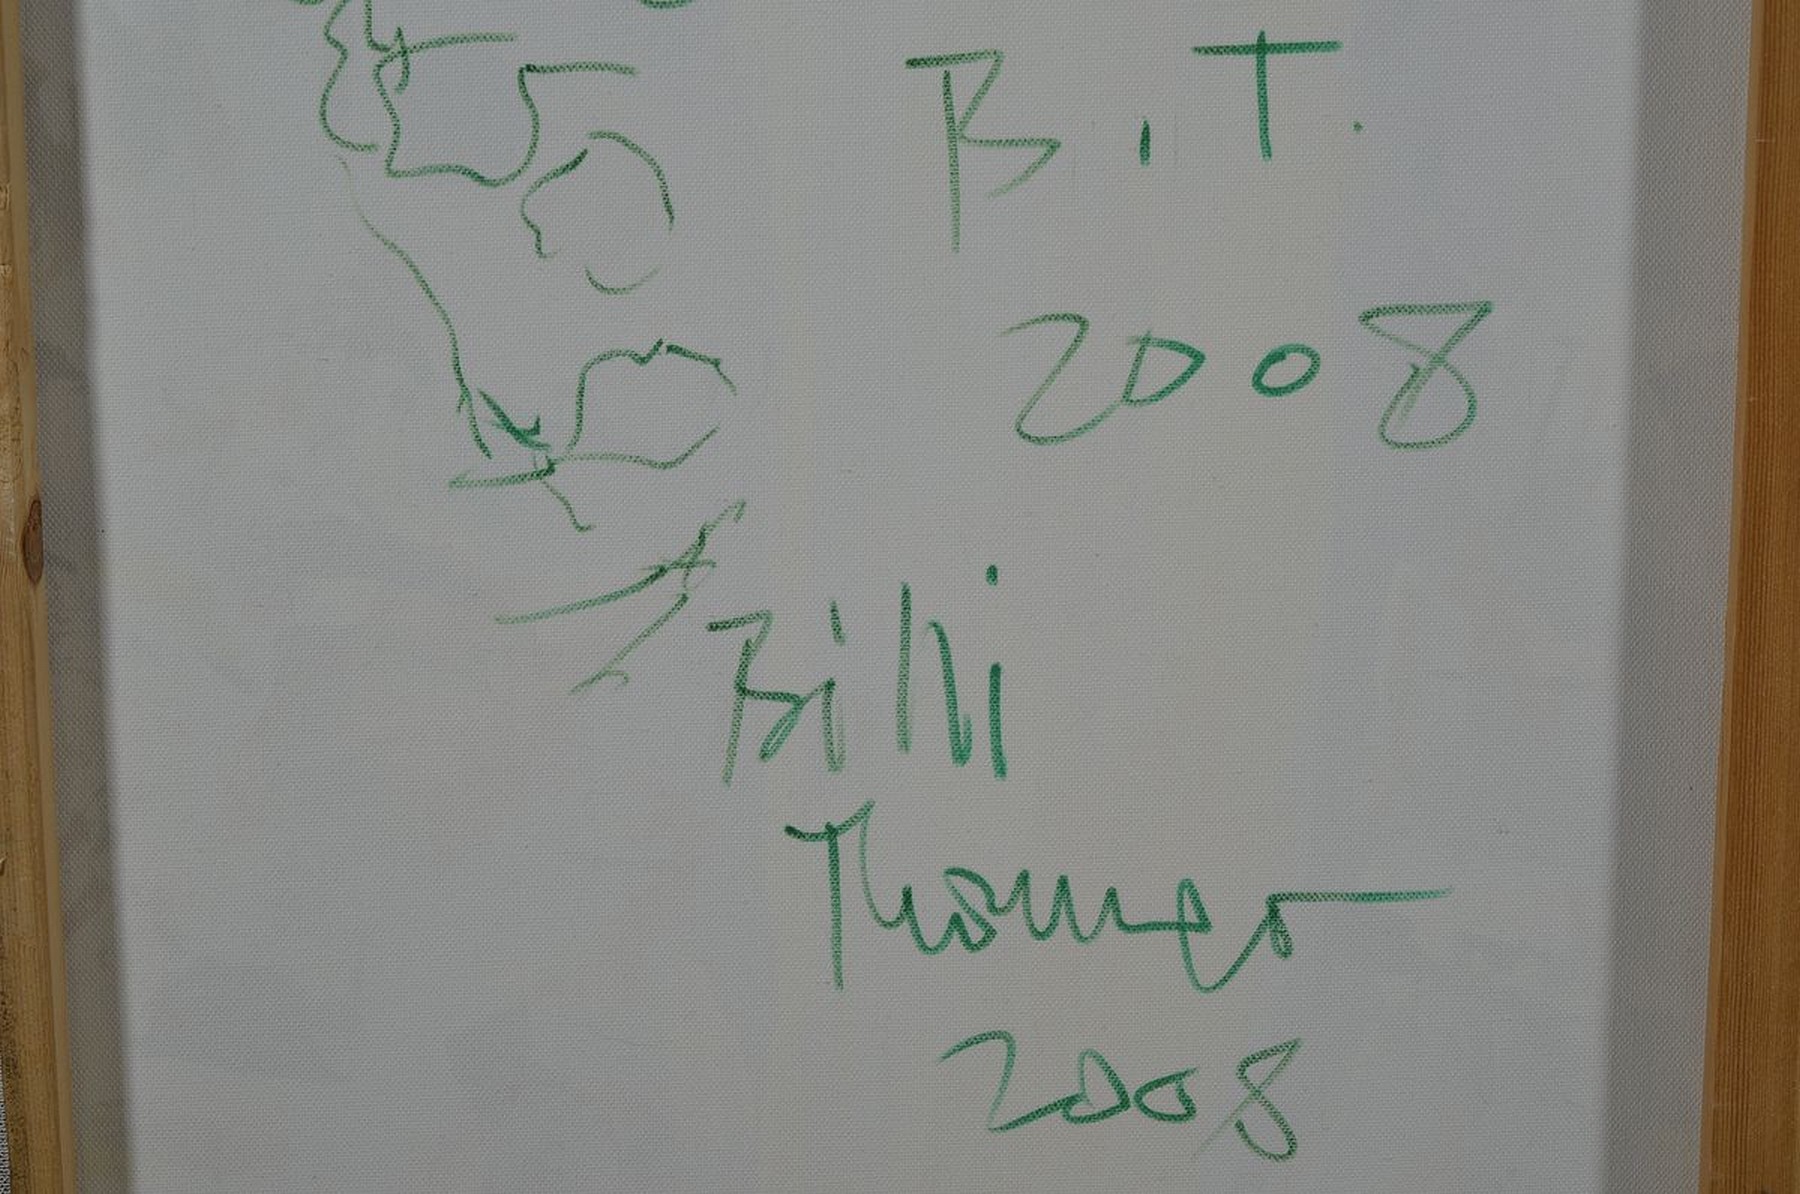 B.T.
2008
Billi
Thomas
2008